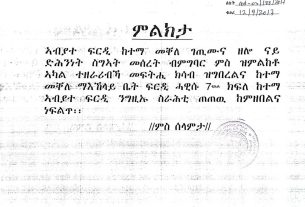 12/9/2017
ምልክታ
ኣብያተ ፍርዲ ከተማ መቐለ ገጢሙና ዘሎ ናይ
ድሕንነት ስግኣት መሰረት ብምግባር ምስ ዝምልከቶ
ኣካል ተዘራሪብኻ መፍትሒ ክሳብ ዝግበረልና ከተማ
መቐለ ማእኸላይ ቤት ፍርዲ ሓዊሱ 7ተ ክፍለ ከተማ
ኣብያተ ፍርዲ ንግዚኡ ስራሕቲ ጠጠዉ ከምዘበልና
ነፍልጥ።
//ምስ ሰላምታ//